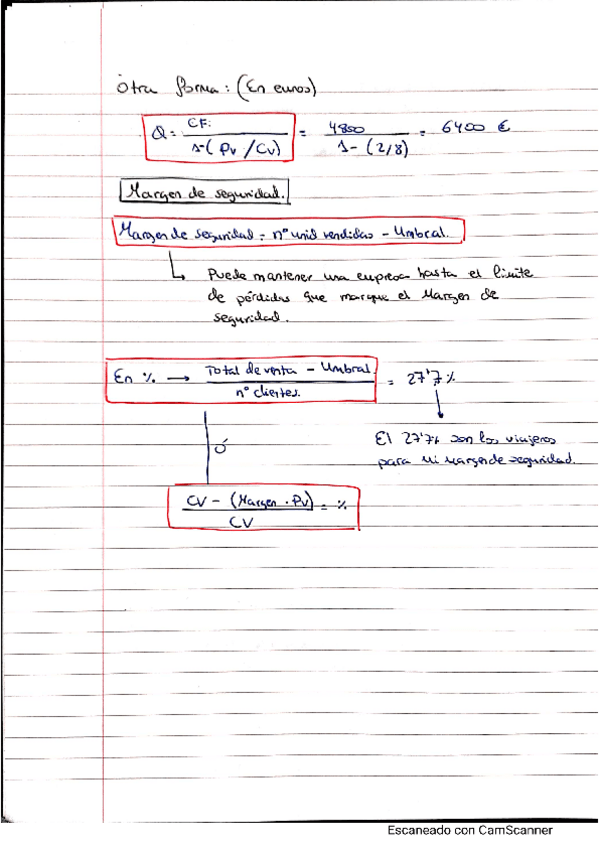 Otra forma: (En euros)
Q = CF. / 1-(Pv/Cv) = 4800 / 1-(2/8) = 6400 €
Margen de seguridad.
Margen de seguridad = nº unid vendidas - Umbral.
Puede mantener una empresa hasta el límite
de pérdidas que marque el Margen de
seguridad.
En % → Total de venta - Umbral / nº clientes. = 27'7%
Ó
El 27'7% son los viajeros
para mi margen de seguridad.
CV - (Margen · Pv) / CV = %
Escaneado con CamScanner